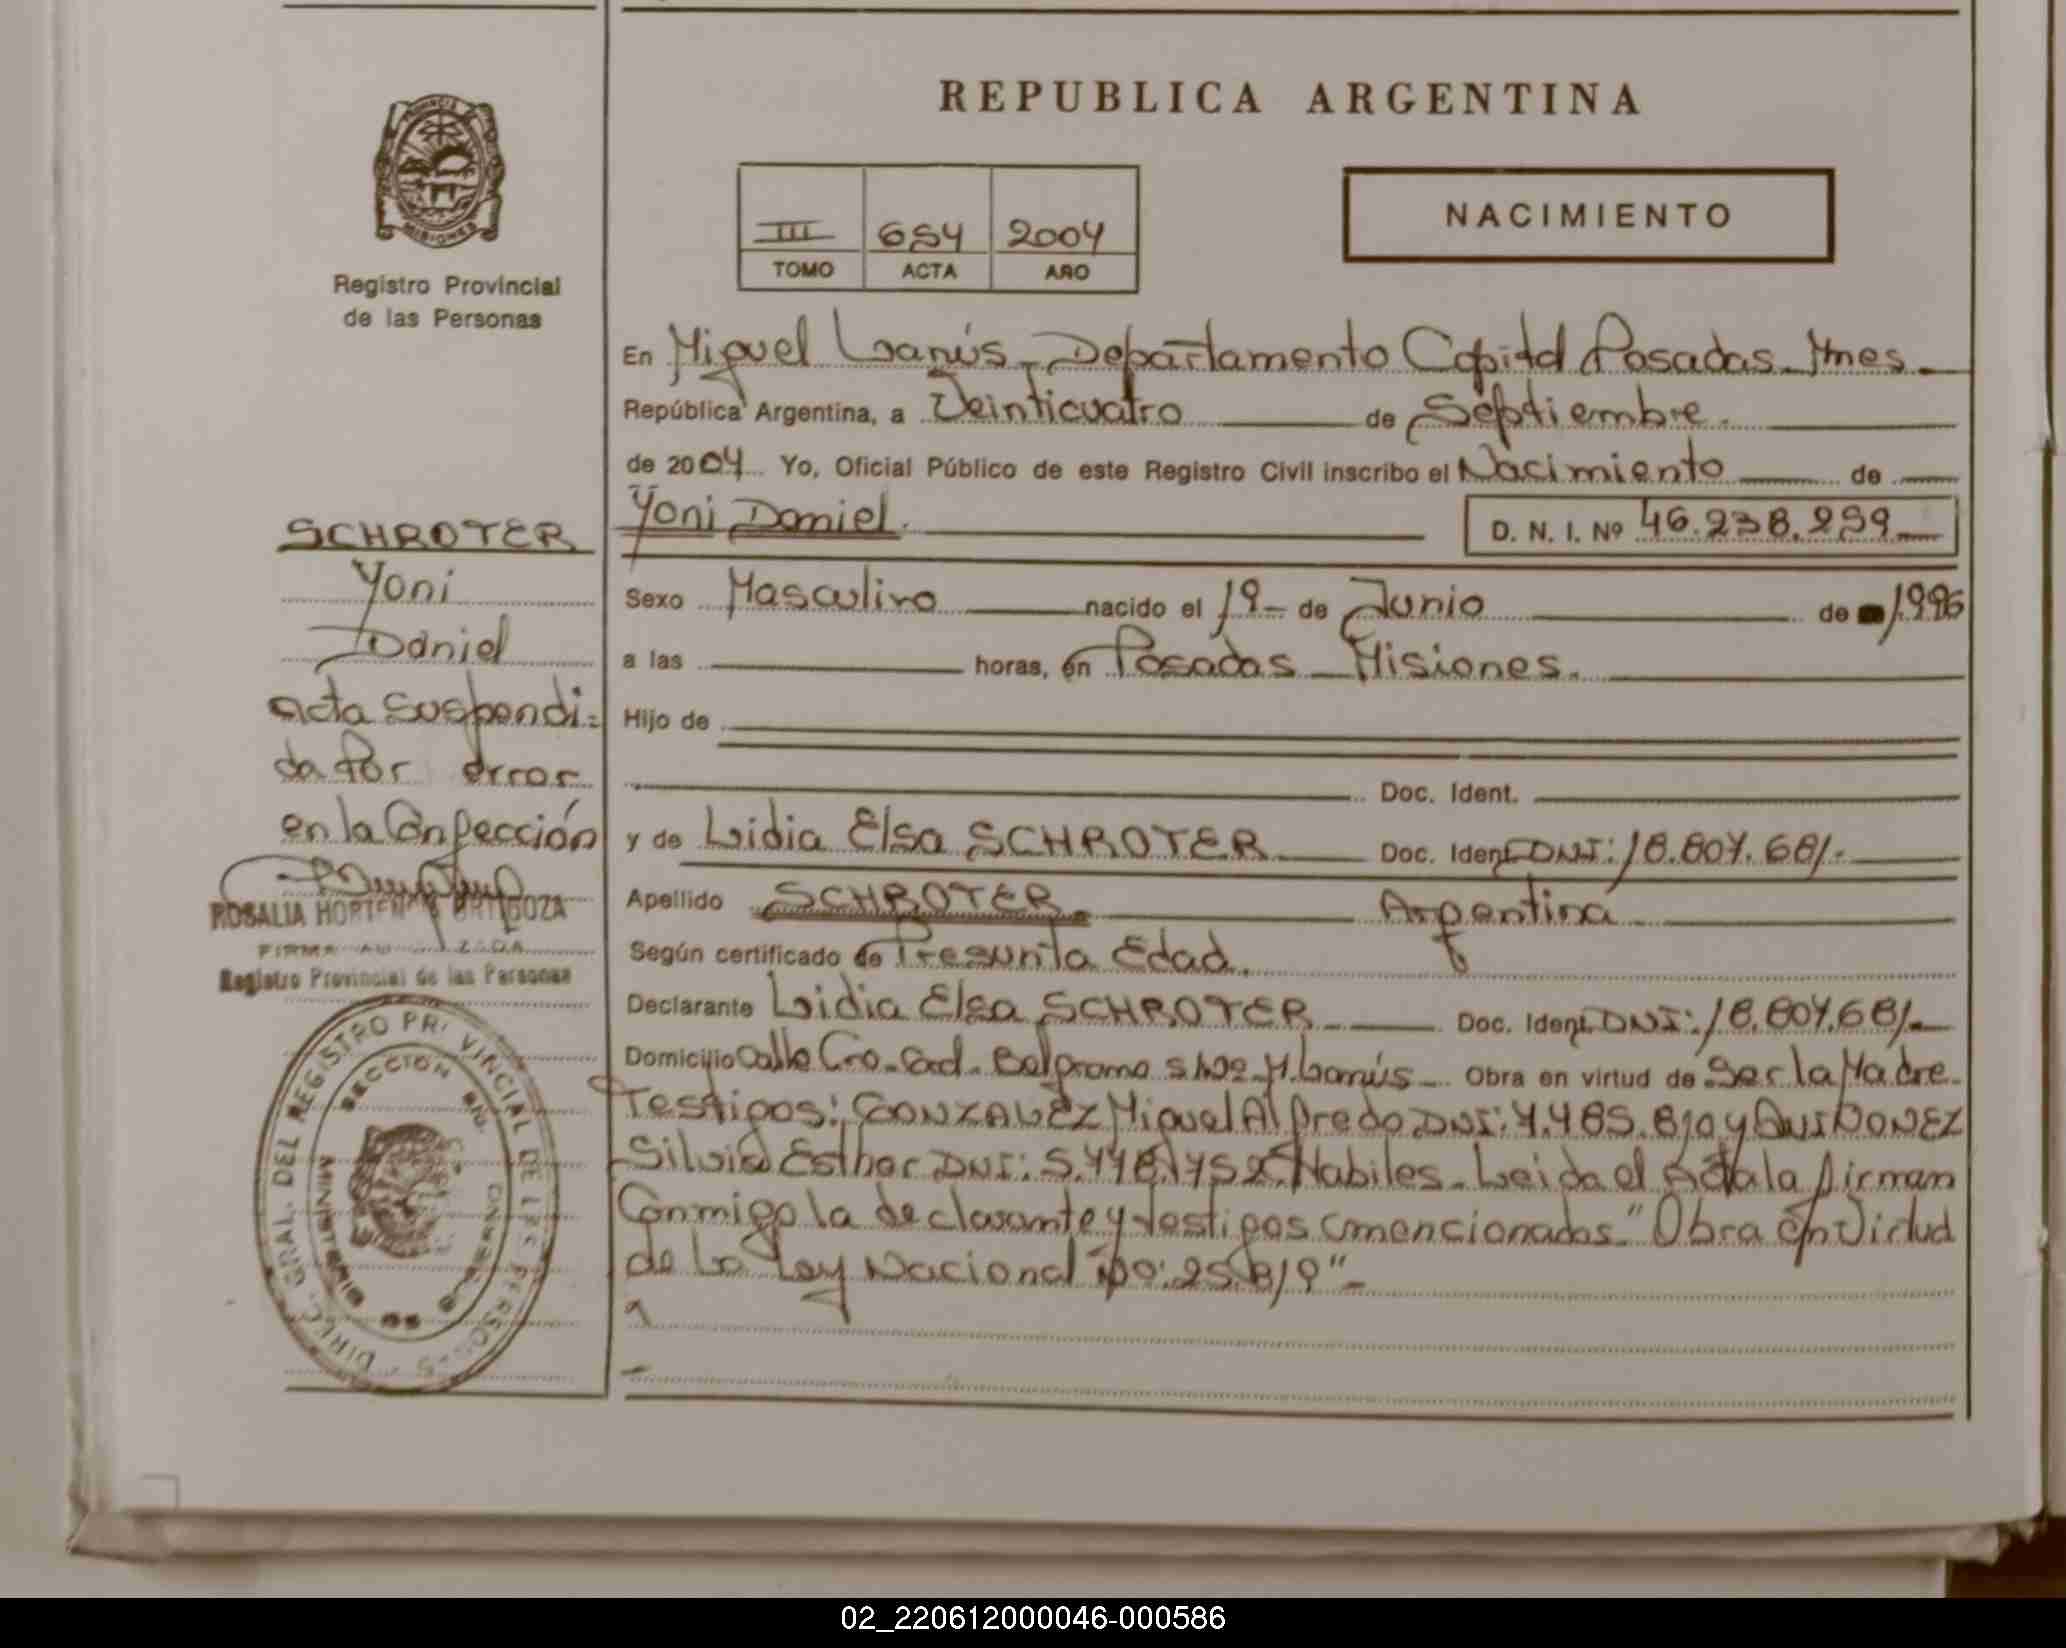 REPUBLICA ARGENTINA
PROVINCIA
MISIONES
Registro Provincial
de las Personas
III 654 2004
TOMO ACTA AÑO
NACIMIENTO
En Miguel Lanús - Departamento Capital Posadas - Mnes.
República Argentina, a Veinticuatro de Septiembre.
de 2004 Yo, Oficial Público de este Registro Civil inscribo el Nacimiento de
Yoni Daniel. D. N. I. Nº 46.238.259
Sexo Masculino nacido el 19 - de Junio de 1996
a las horas, en Posadas - Misiones.
Hijo de
Doc. Ident.
y de Lidia Elsa SCHROTER Doc. Ident. DNI: 18.807.681.-
Apellido SCHROTER. Argentina
Según certificado de Presunta Edad.
Declarante Lidia Elsa SCHROTER Doc. Ident. DNI: 18.807.681.-
Domicilio Calle Cro. Gral. Belgrano s/Nº M. Lanús - Obra en virtud de Ser la Madre.
Testigos: GONZALEZ Miguel Alfredo DNI: 7.485.810 y QUIÑONEZ
Silvia Esther DNI: 5.778.752 Habiles - Leida el Acta la firman
Conmigo la declarante y testigos mencionados. "Obra en Virtud
de La Ley Nacional Nº: 25.819" -
SCHROTER
Yoni
Daniel
Acta suspendi=
da por error
en la Confección
ROSALIA HORTENCIA ORTIGOZA
FIRMA AUTORIZADA
Registro Provincial de las Personas
DIREC. GRAL. DEL REGISTRO PROVINCIAL DE LAS PERSONAS
SECCION
02_220612000046-000586